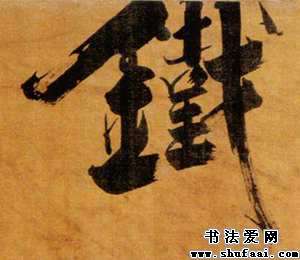 鐵
书法爱网
www.shufaai.com